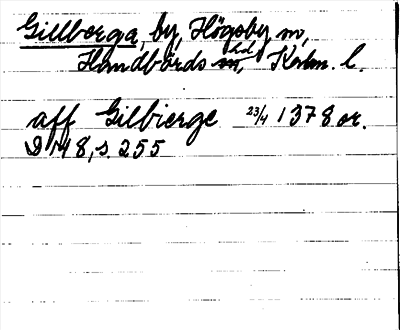 Gillberga, by, Högsby sn,
Handbörds hd, Kalm. l.
aff Gilbierge 23/4 1378 or.
D 148, s. 255